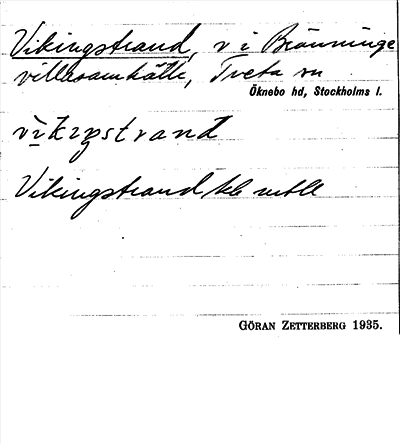 Vikingstrand, v i Bränninge
villasamhälle, Tveta sn
Öknebo hd, Stockholms l.
Vikingstrand
GÖRAN ZETTERBERG 1935.